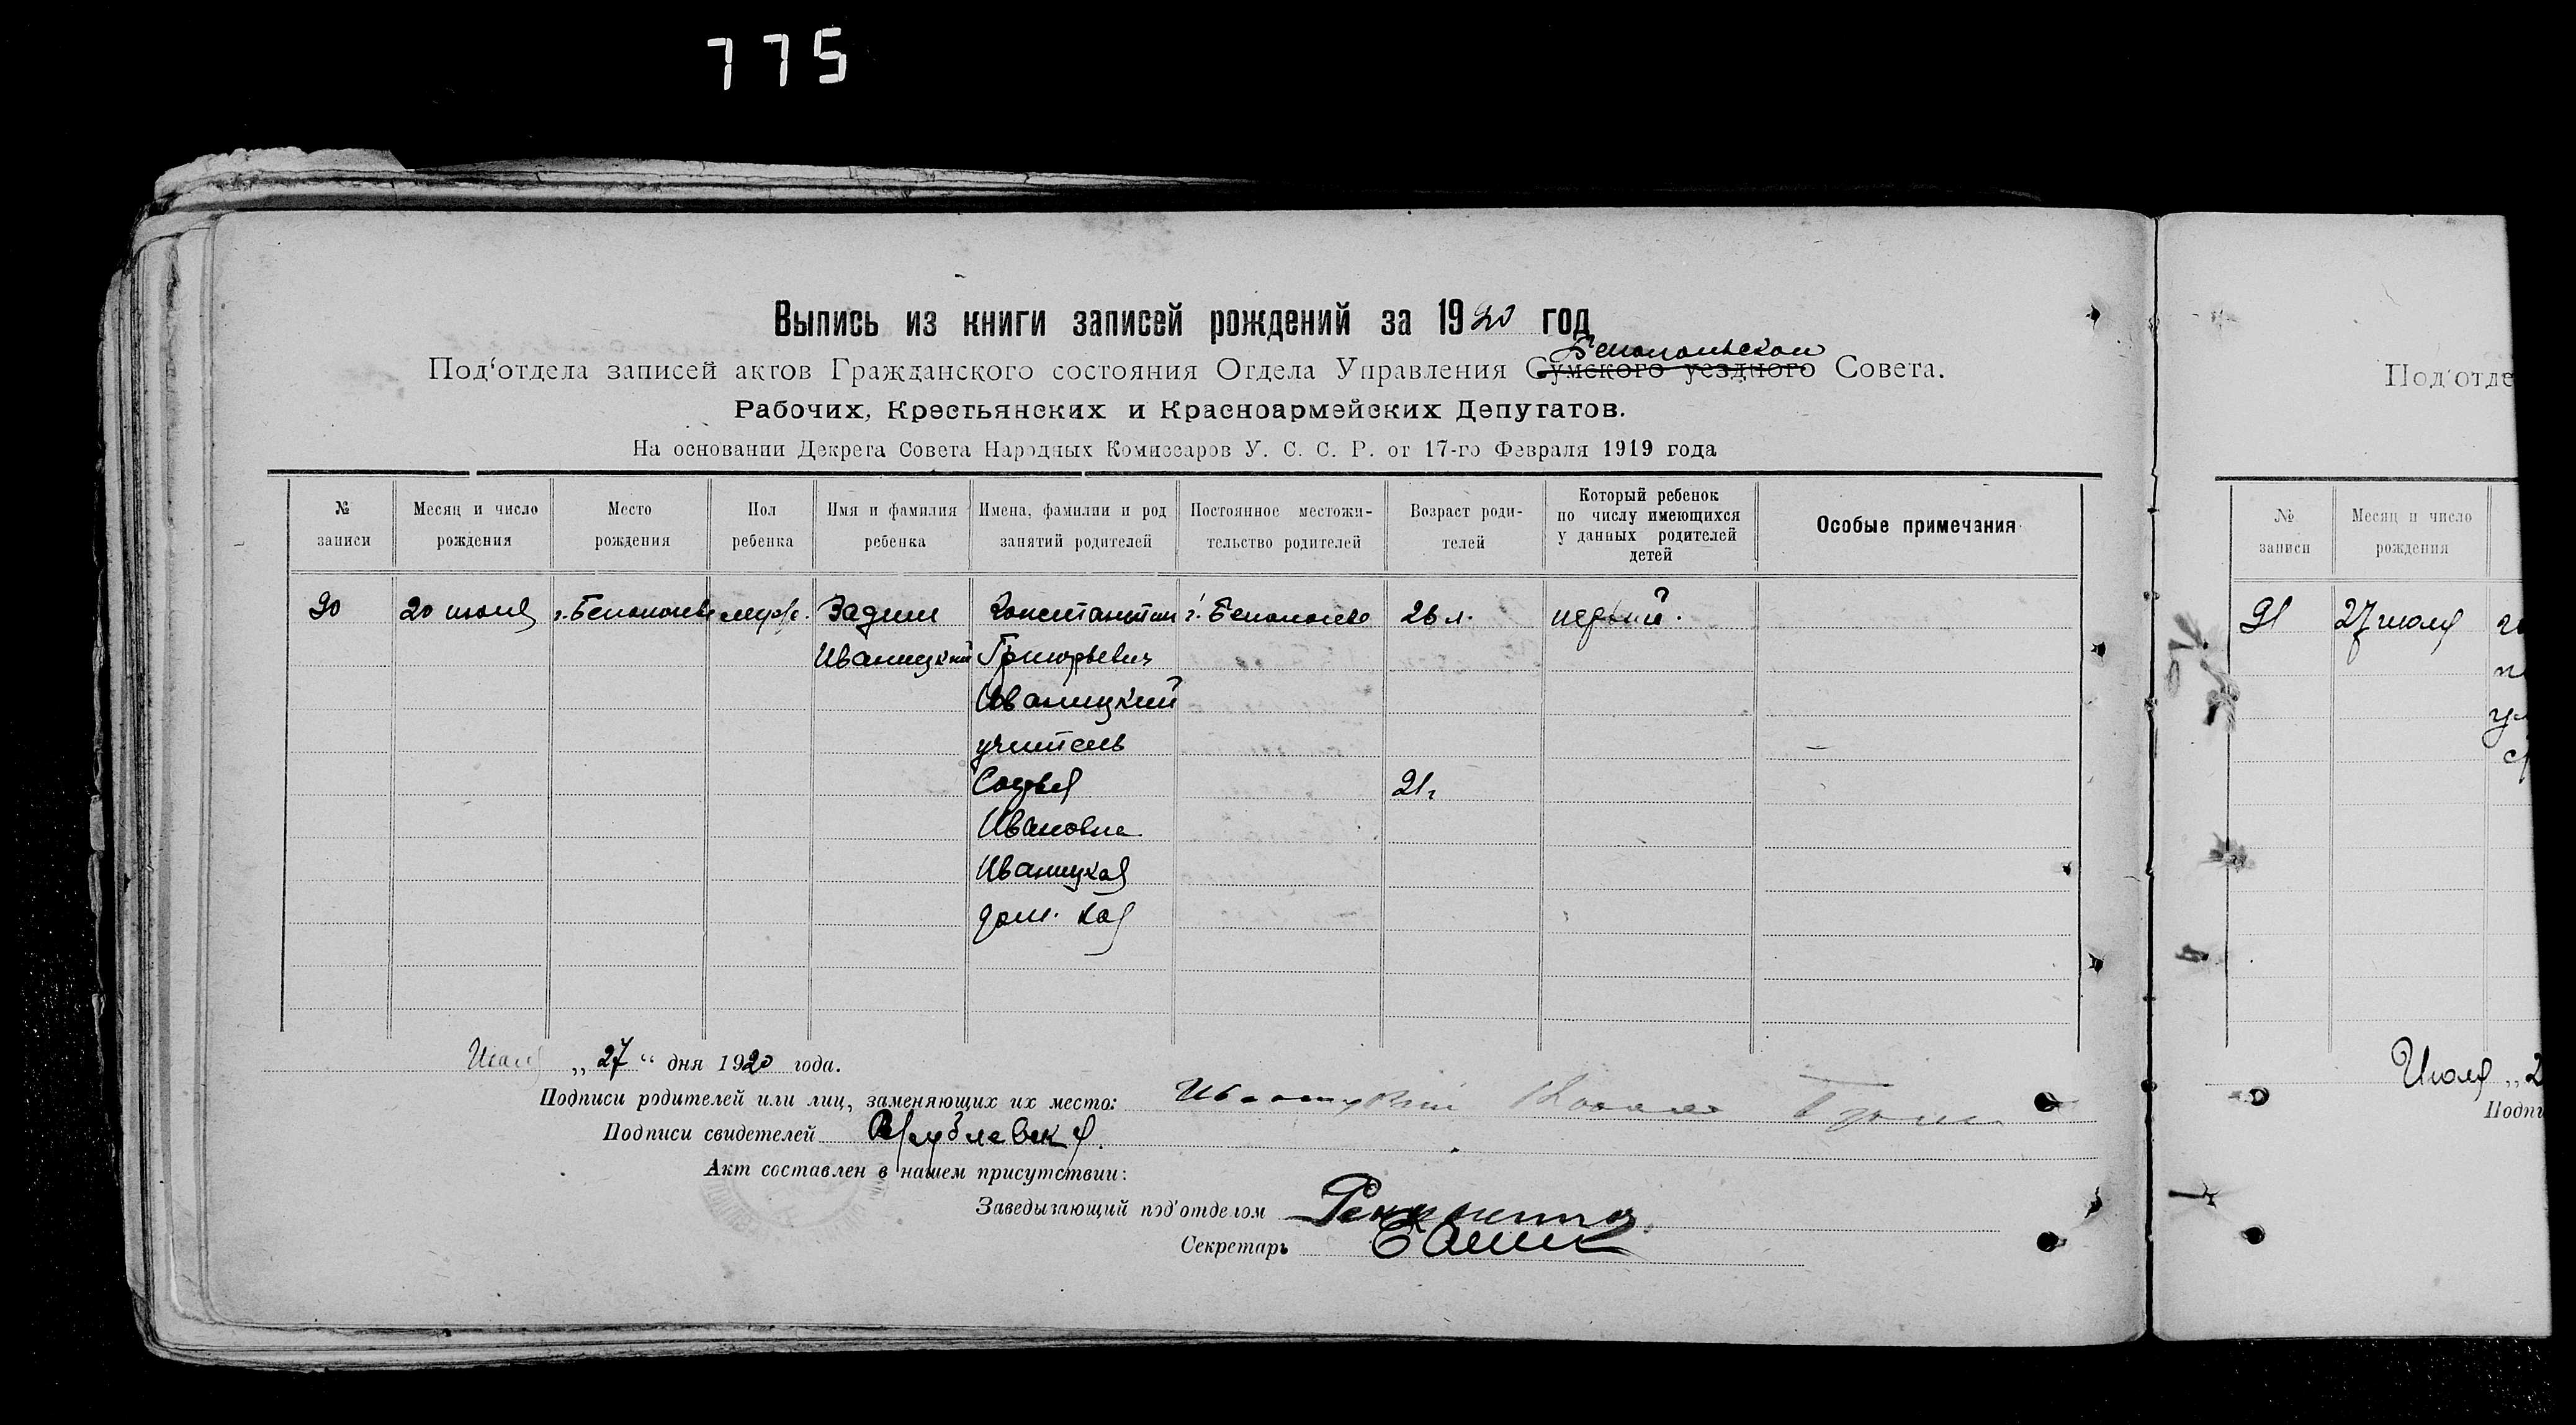 775
Выпись из книги записей рождений за 1920 год
Белопольском
Под'отдела записей актов Гражданского состояния Отдела Управления Сумского уездного Совета.
Рабочих, Крестьянских и Красноармейских Депутатов.
На основании Декрета Совета Народных Комиссаров У. С. С. Р. от 17-го Февраля 1919 года
№ записи
Месяц и число рождения
Место рождения
Пол ребенка
Имя и фамилия ребенка
Имена, фамилии и род занятий родителей
Постоянное местожи-
тельство родителей
Возраст роди-
телей
Который ребенок
по числу имеющихся
у данных родителей
детей
Особые примечания
90 20 июля г. Белополье муж. Вадим Константин г. Белополье 26 л. первый.
Иваницкий Григорьевич
Иваницкий
учитель
Софья 21 г
Ивановна
Иваницкая
дом. хоз
Июля „27“ дня 1920 года.
Подписи родителей или лиц, заменяющих их место: Иваницкий
Подписи свидетелей
Акт составлен в нашем присутствии:
Заведывающий под'отделом
Секретарь
Под'отде
№ записи
Месяц и число рождения
91 27 июля
Июля „2
Подпи